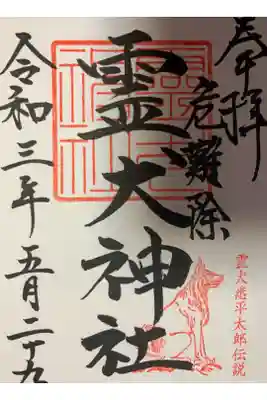 奉拝
危難除
霊犬神社
令和三年五月二十九
霊犬悉平太郎伝説